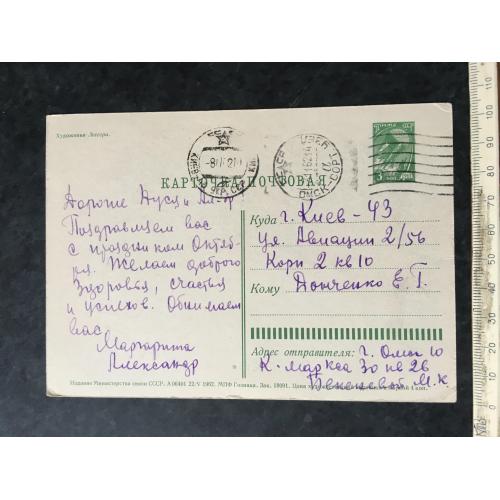 Художник Лесора.
КАРТОЧКА ПОЧТОВАЯ
Дорогие Нуся и
Поздравляем вас
с праздником Октяб-
ря. Желаем доброго
здоровья, счастья
и успехов. Обнимаем
вас
Маргарита
Александр
Куда г. Киев-43
ул. Авиации 2/56
Корп 2 кв 10
Кому Донченко Е. Г.
Адрес отправителя: г. Омск 10
К. Маркса 30 кв 26
М. К
Издание Министерства связи СССР. А 06401 22/V 1962. МПФ Гознака. Зак. 18091.